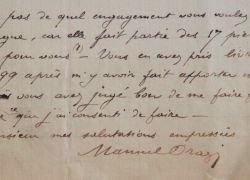 pas de quel engagement vous voule
gne, car elle fait partie des 17 piè
pour vous (1) — Vous en avez pris livr
99 après m'y avoir fait apporter
vous avez jugé bon de me faire
ce que j'ai consenti de faire —
nsieur mes salutations empressées
Manuel Orazi